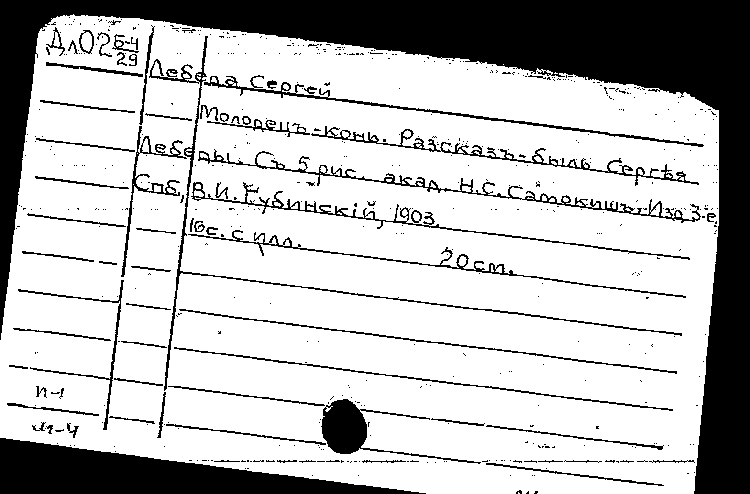 Дл02 Б-4/29
Лебеда, Сергей
Молодецъ-конь. Разсказъ-быль Сергѣя
Лебеды. Съ 5 рис. акад. Н.С. Самокишъ. Изд. 3-е
Спб., В.И. Губинскій, 1903.
16с. с илл. 20см.
п-1
м-4